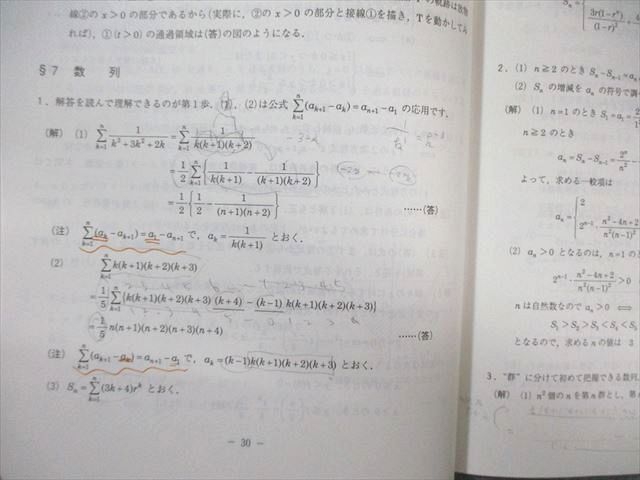 線②の x>0 の部分であるから(実際に, ②の x>0 の部分と接線①を描き, Tを動かしてみ
れば), ①(t>0) の通過領域は(答)の図のようになる.
§7 数 列
1. 解答を読んで理解できるのが第1歩. (1), (2)は公式 Σ_{k=1}^{n}(a_{k+1}-a_k)=a_{n+1}-a_1 の応用です.
(解) (1) Σ_{k=1}^{n} 1/(k³+3k²+2k) = Σ_{k=1}^{n} 1/(k(k+1)(k+2))
= 1/2 Σ_{k=1}^{n} {1/(k(k+1)) - 1/((k+1)(k+2))}
= 1/2 {1/2 - 1/((n+1)(n+2))} ……(答)
(注) Σ_{k=1}^{n}(a_k-a_{k+1})=a_1-a_{n+1} で, a_k= 1/(k(k+1)) とおく.
(2) Σ_{k=1}^{n} k(k+1)(k+2)(k+3)
= 1/5 Σ_{k=1}^{n} {k(k+1)(k+2)(k+3)(k+4)-(k-1)k(k+1)(k+2)(k+3)}
= 1/5 n(n+1)(n+2)(n+3)(n+4) ……(答)
(注) Σ_{k=1}^{n}(a_{k+1}-a_k)=a_{n+1}-a_1 で, a_k=(k-1)k(k+1)(k+2)(k+3) とおく.
(3) S_n= Σ_{k=1}^{n}(3k+4)r^k とおく.
- 30 -
3r(1-r^n)
(1-r)²
2. (1) n≧2 のとき S_n-S_{n-1}=
(2) S_n の増減を a_n の符号で調
(解) (1) n=1 のとき S_1=a_1=
n≧2 のとき
a_n=S_n-S_{n-1}= 2^n/n²
よって, 求める一般項は
a_n= { 2
2^{n-1}・(n²-4n+2)/(n²(n-1)²)
(2) a_n>0 となるのは, n=1 の
2^{n-1}・(n²-4n+2)/(n²(n-1)²)>0
n は自然数なので a_n>0 ⟺
S_1>S_2>S_3<S_4<S_5
となるので, 求める n の値は 3
3. “群”に分けて初めて把握できる数列.
(解) (1) n² 個の n を第 n 群とし, 第